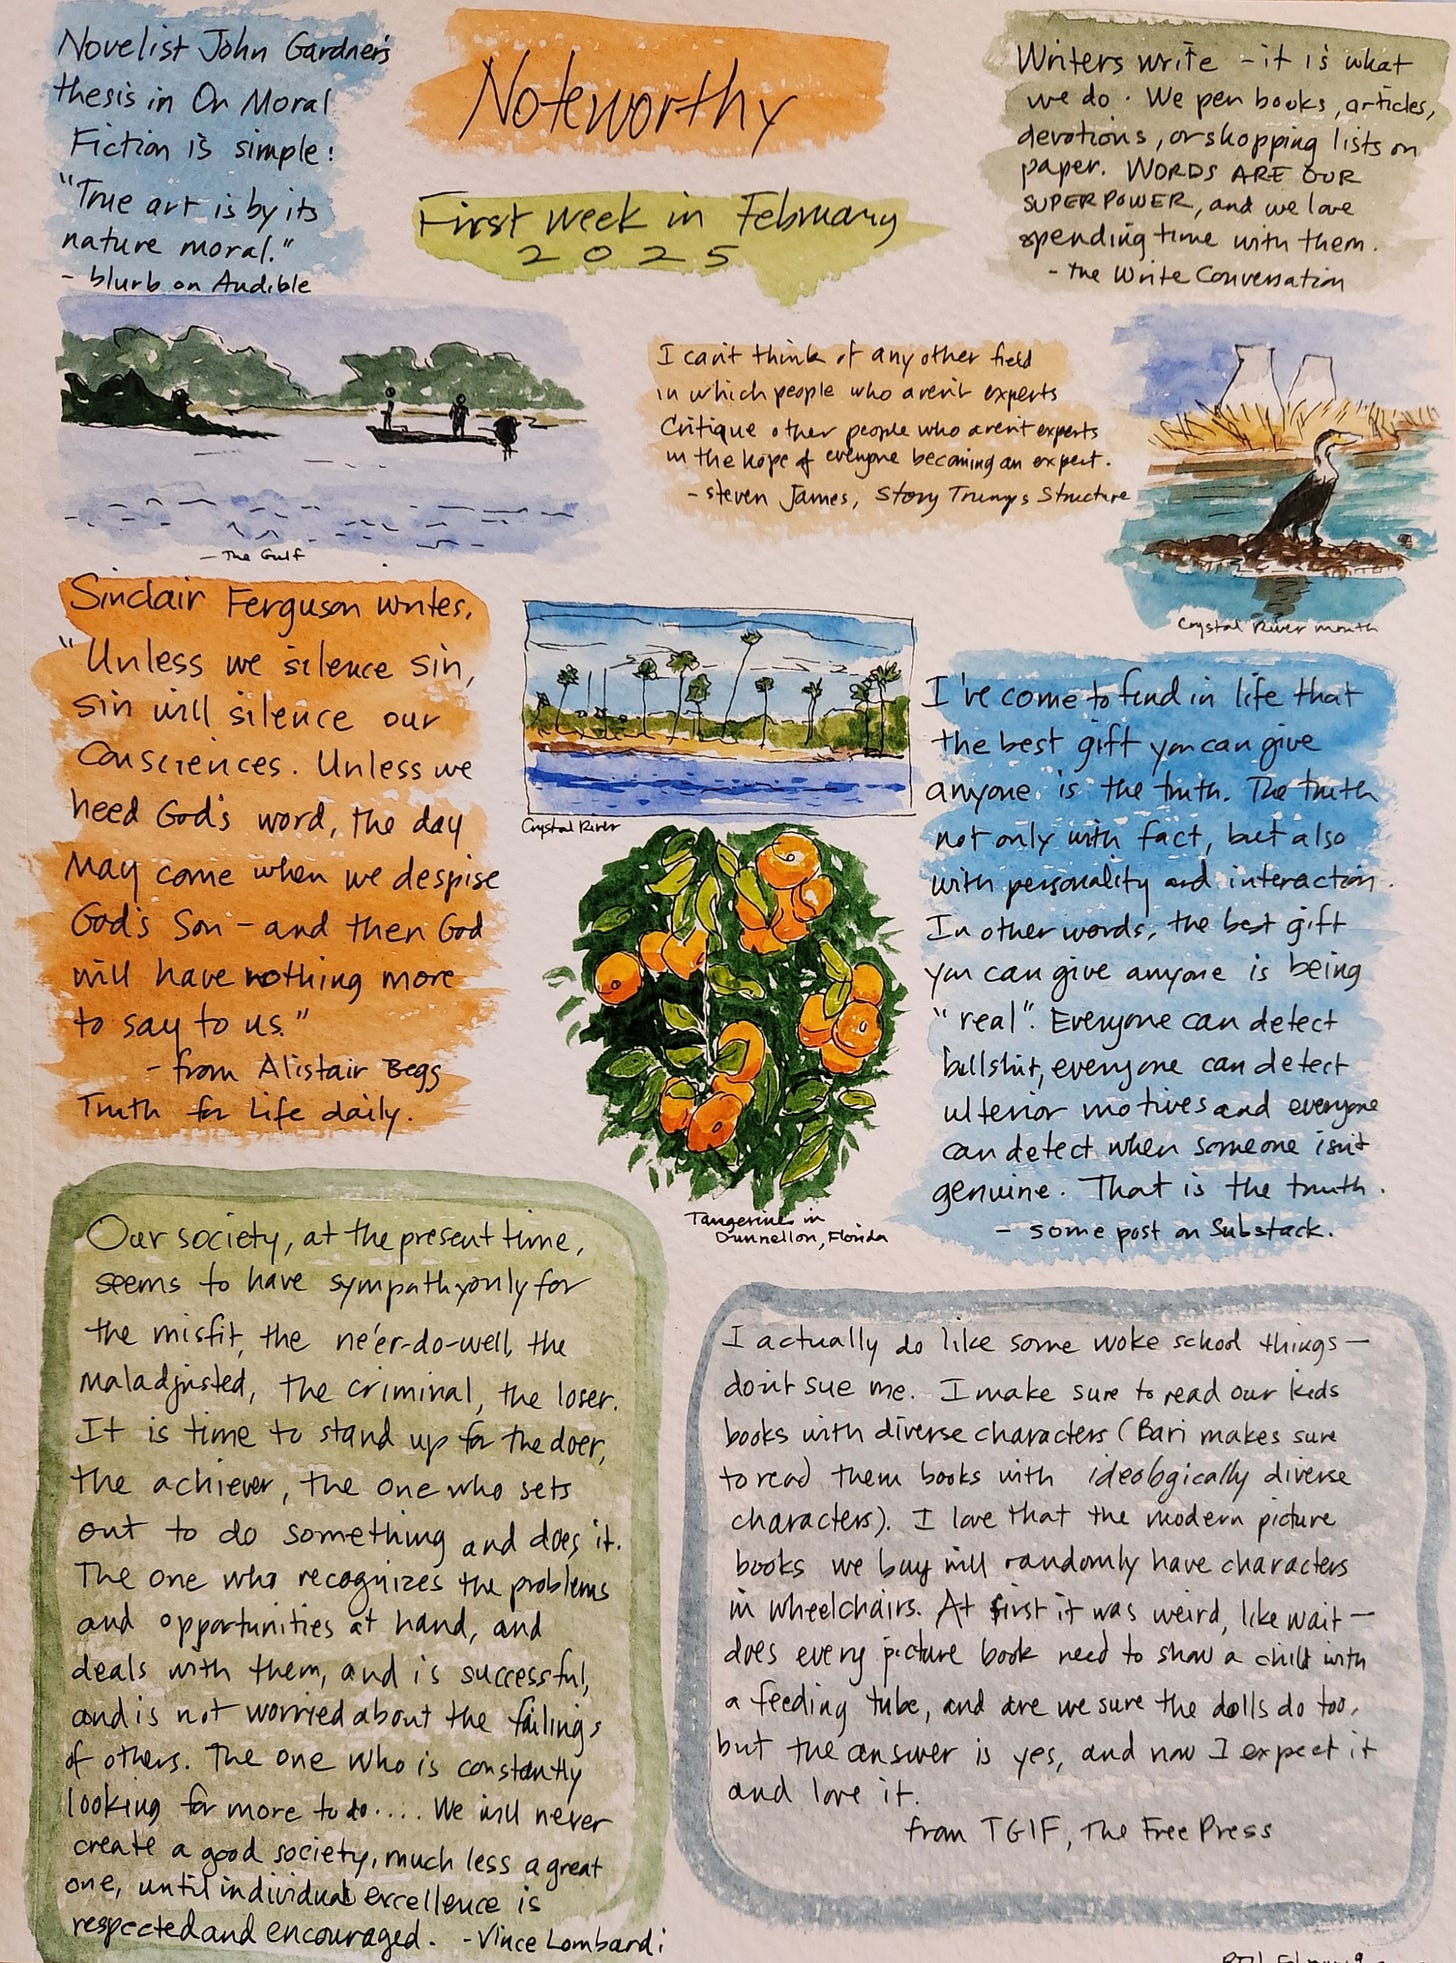 Novelist John Gardner's
thesis in On Moral
Fiction is simple:
"True art is by its
nature moral."
- blurb on Audible
Noteworthy
First week in February
2025
Writers write - it is what
we do. We pen books, articles,
devotions, or shopping lists on
paper. WORDS ARE OUR
SUPERPOWER, and we love
spending time with them.
- the Write Conversation
- The Gulf
I can't think of any other field
in which people who aren't experts
critique other people who aren't experts
in the hope of everyone becoming an expert.
- Steven James, Story Trumps Structure
Crystal River mouth
Sinclair Ferguson writes,
"Unless we silence sin,
sin will silence our
consciences. Unless we
heed God's word, the day
may come when we despise
God's Son - and then God
will have nothing more
to say to us."
- from Alistair Begg
Truth for Life daily.
Crystal River
Tangerines in
Dunnellon, Florida
I've come to find in life that
the best gift you can give
anyone is the truth. The truth
not only with fact, but also
with personality and interaction.
In other words, the best gift
you can give anyone is being
"real". Everyone can detect
bullshit, everyone can detect
ulterior motives and everyone
can detect when someone isn't
genuine. That is the truth.
- some post on Substack.
Our society, at the present time,
seems to have sympathy only for
the misfit, the ne'er-do-well, the
maladjusted, the criminal, the loser.
It is time to stand up for the doer,
the achiever, the one who sets
out to do something and does it.
The one who recognizes the problems
and opportunities at hand, and
deals with them, and is successful,
and is not worried about the failings
of others. The one who is constantly
looking for more to do.... We will never
create a good society, much less a great
one, until individual excellence is
respected and encouraged. - Vince Lombardi
I actually do like some woke school things—
don't sue me. I make sure to read our kids
books with diverse characters (Bari makes sure
to read them books with ideologically diverse
characters). I love that the modern picture
books we buy will randomly have characters
in wheelchairs. At first it was weird, like wait—
does every picture book need to show a child with
a feeding tube, and are we sure the dolls do too,
but the answer is yes, and now I expect it
and love it.
from TGIF, The Free Press